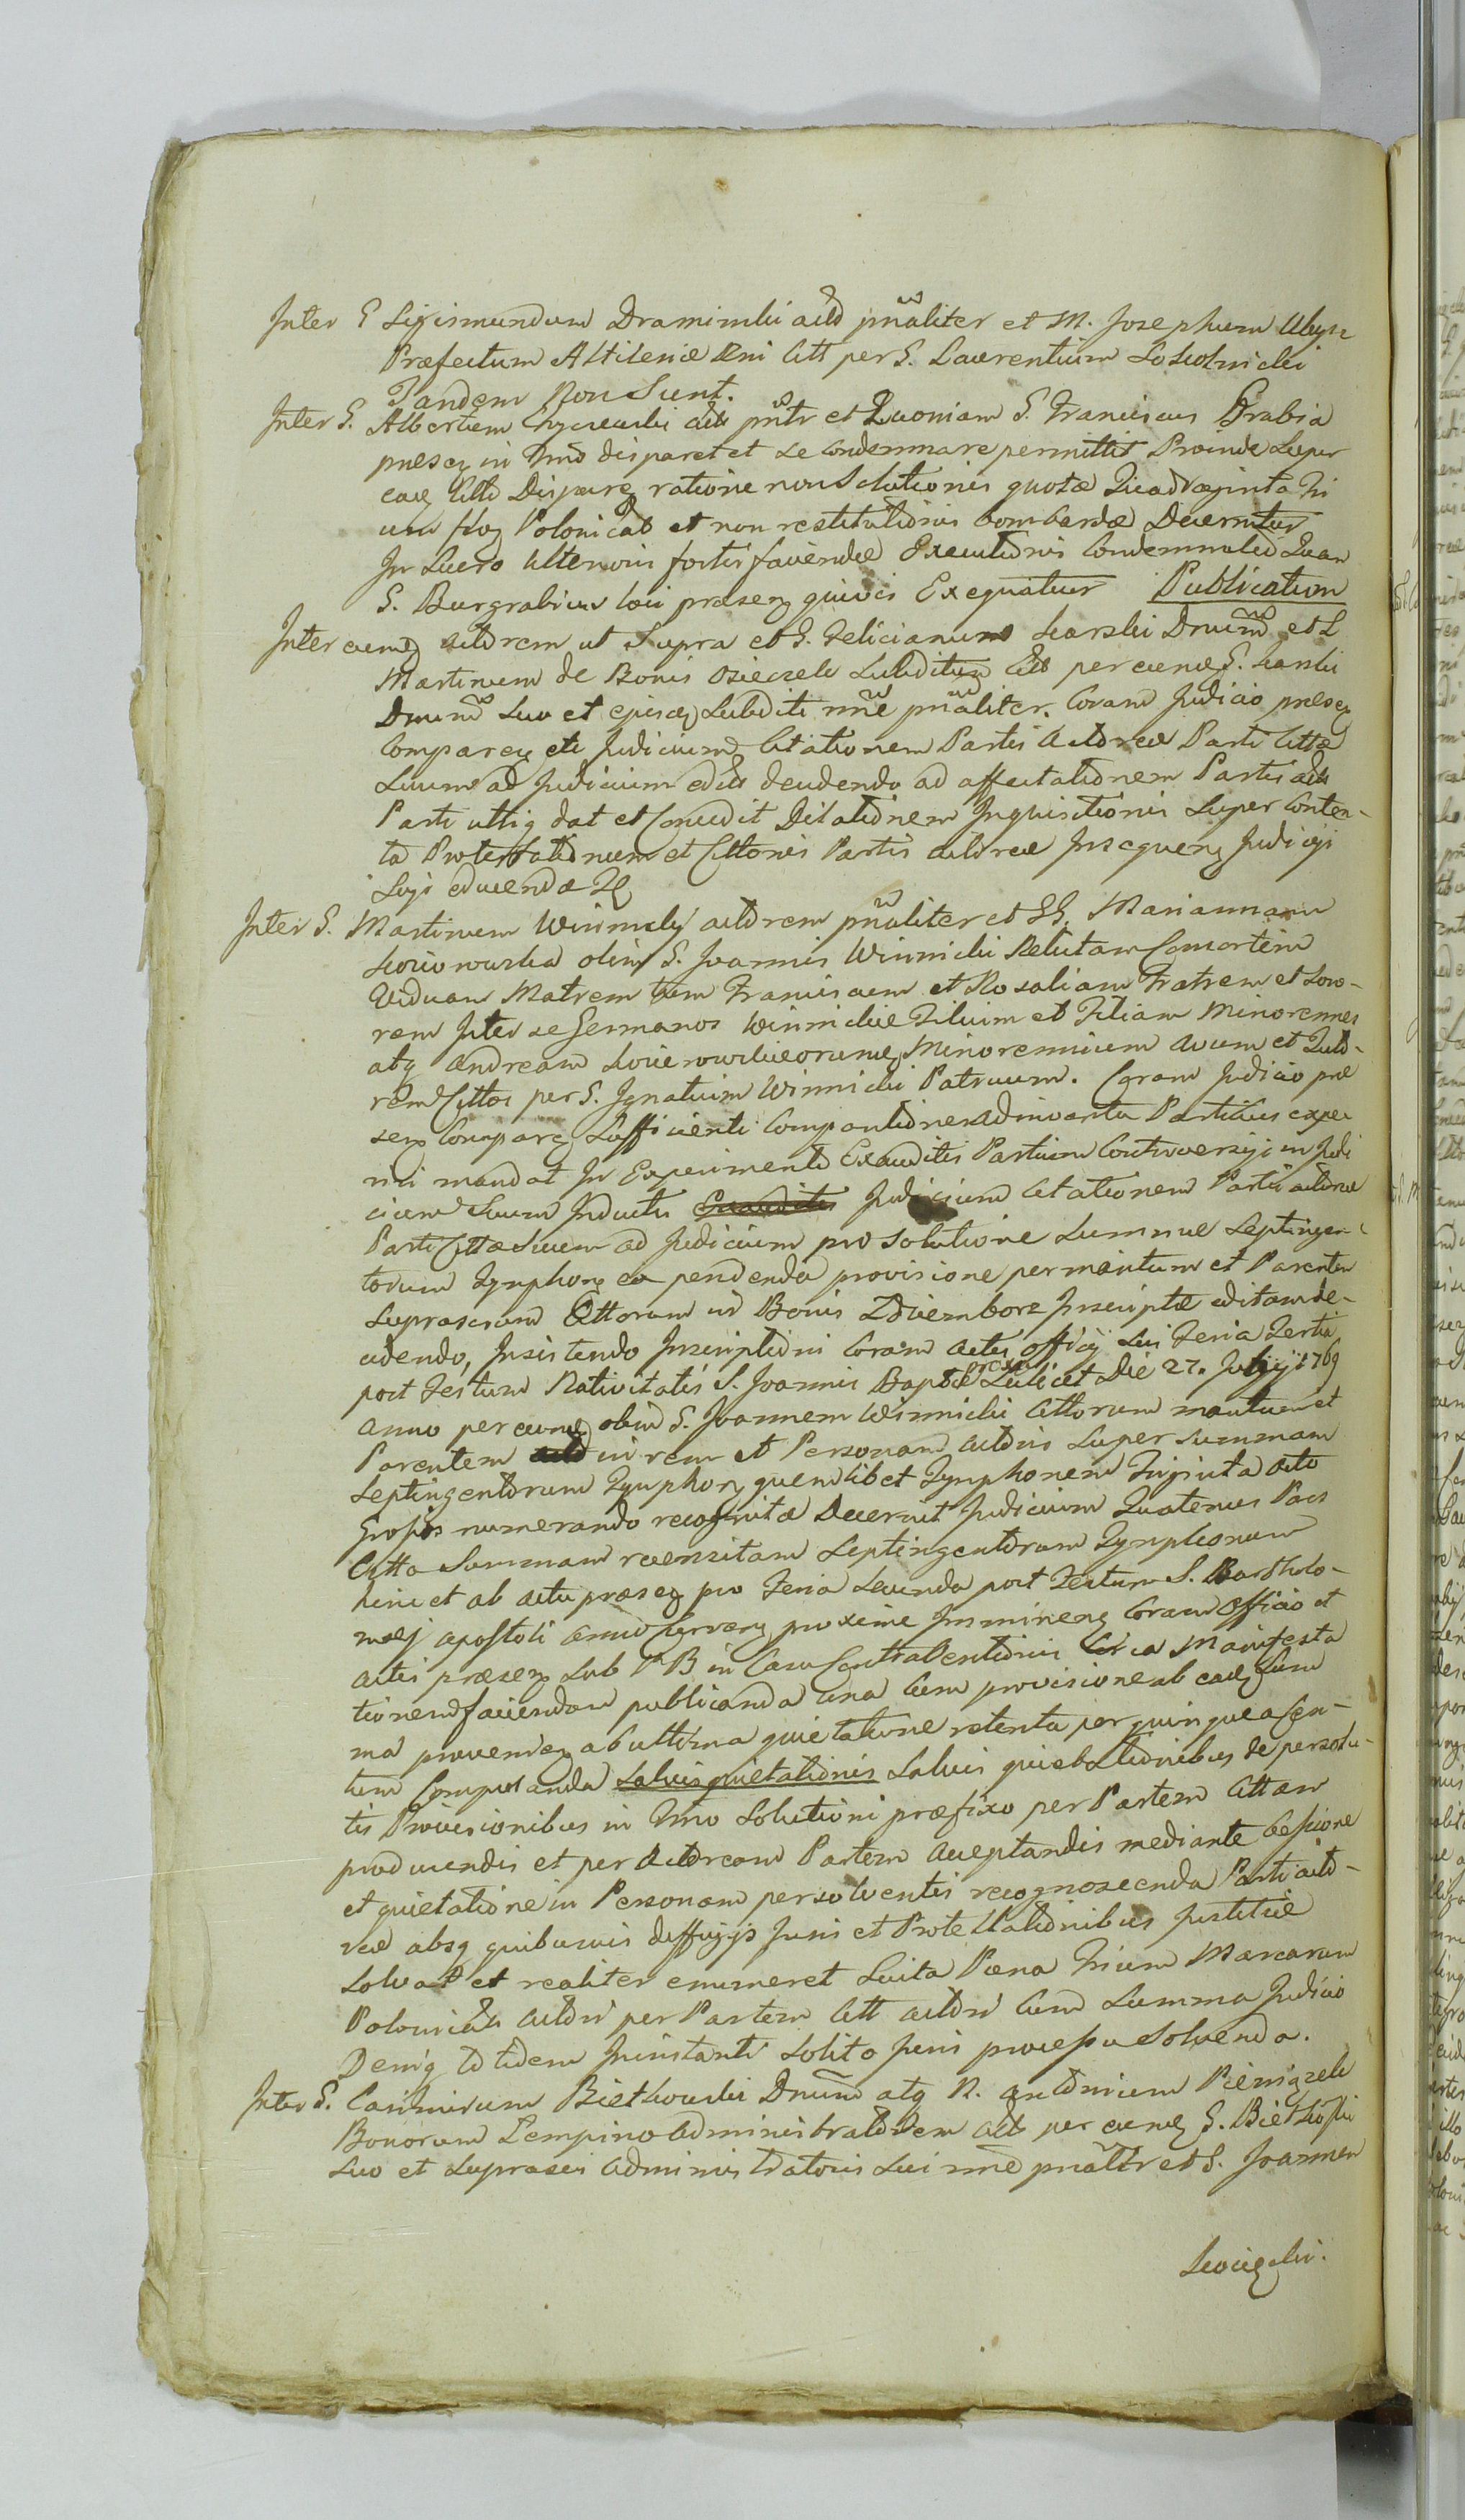 Inter G Sigismundum Dramiński actō pñaliter et M. Josephum
Præfectum Altileriæ Rni Citt per G. Laurentium
Tandem Non Sunt.
Inter G. Albertum act pntr et Quoniam G. Franciscus Grabia
præseq in Tmō disparet et se condemnare permittit Proinde super
eaq Citto Disparq ratione non Solutionis quotæ Quadraginta Tri
um floq Polonical et non restitutionis bombardæ Decernitur
In Lucro Ulterioris fortis faciendæ Executionis Condemnated Quam
G. Burgrabius loci præseq quivis Exequatur Publicatum
Inter eumq actorem ut Supra et G. Felicianum Karski Dnum et L
Martinum de Bonis Osieczek Subditum Citt per eumq G. Karski
Dnum Suo et ejusq Subditi nñe pñaliter. Coram Judicio præseq
Compareq etc Judicium Citationem Partis Actoreæ Parti Cittæ
Suum ad Judicium edit deudendo ad affectationem Partis act
Parti uttiq dat et Concedit Dilationem Inquisitionis Super Conten-
ta Protestationum et Cittonis Partis actoreæ Insequenq Judicyi
Suyi educendæ
Inter G. Martinum Winnicki actorem pñaliter et GG. Mariannam
olim G. Joannis Winnicki Relictam Consortem
Viduam Matrem tum Franciscum et Rosaliam Fratrem et Soro-
rem Inter se Germanos Winnickie Filium et Filiam Minorennes
atq Andream Minorennium avum et Tuto-
rem Cittos per G. Ignatium Winnicki Patruum. Coram Judicio præ
seq Comparq Sufficienti Compontionem adinventa Partibus expe
riri mandat In Experimento Exauditis Partium Controversyi in Judi
cium Suum Inductis Exauditis Judicium Citationem Partis actoreæ
Parti Cittæ Suum ad Judicium pro Solutione Summæ Septingen-
torum Tynphonq ea pendenda provisione per maritum et Parentem
Suprascrum Cittorum in Bonis Zdziembore Inscriptæ editam de-
cidendo, Insistendo Inscriptioni Coram Actis officy Sui Feria Tertia
post Festum Nativitatis S. Joannis Baptæ prox Scilicet Die 27. Juny 1769
Anno per eumq olim G. Joannem Winnicki Cittorum maritum et
Parentem in rem et Personam Actoris Super Summam
Septingentorum Tynphonq quemlibet Tynphonem Triginta Octo
Grossis numerando recognitæ Decernit Judicium Quatenus Pars
Citta Summam recensitam Septingentorum Tynphonum
hinc et ab actu præseq pro Feria Secunda post Festum S. Bartholo-
mæj apostoli anno Currenq proxime Imminenq Coram Officio et
actis præseq Sub PB in Casu Contraventionis Circa Manifesta
tionem faciendam publicanda una Cum provisione ab eaq Sum
ma provenieq ab ultima quietatione retenta per quinque a Cen-
tum Computanda Salvis quietationis Salvis quietationibus de persolu-
tis Provisionibus in Tmo Solutioni præfixo per Partem Cittam
producendis et per Actoream Partem acceptandis mediante Cessione
et quietatione in Personam persolventis recognoscenda Parti acto-
reæ absq quibusvis diffugys Juris et Protestationibus Justitiæ
Solvat et realiter enumeret Luita Pœna Trium Marcarum
Polonical Actori per Partem Citt Actori Cum Summa Judicio
Deniq totidem Instanti Solito Juris processu Solvenda.
Inter G. Casimirum Bietkowski Dnum atq N. Antonium Pieniązek
Bonorum Lempino administratorem act per eumq G. Bietkoski
Suo et Suprascr administratoris Sui nñe pñaltr et G. Joannem